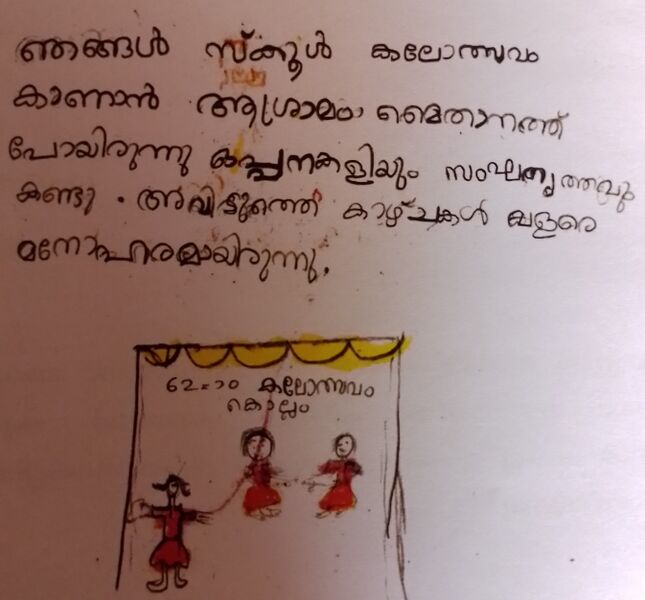 ഞങ്ങൾ സ്ക്കൂൾ കലോത്സവം
കാണാൻ ആശ്രാമം മൈതാനത്ത്
പോയിരുന്നു ഒപ്പനകളിയും സംഘനൃത്തവു
കണ്ടു. അവിടുത്തെ കാഴ്ചകൾ വളരെ
മനോഹരമായിരുന്നു.
62-ാo കലോത്സവം
കൊല്ലം